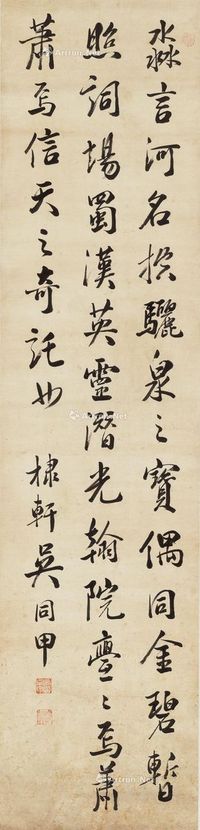 淼言河名揆驪泉之寶偶同金碧暫
照詞場蜀漢英靈潛光翰院亹〻焉蕭
蕭焉信天之奇託也
棣軒吳同甲